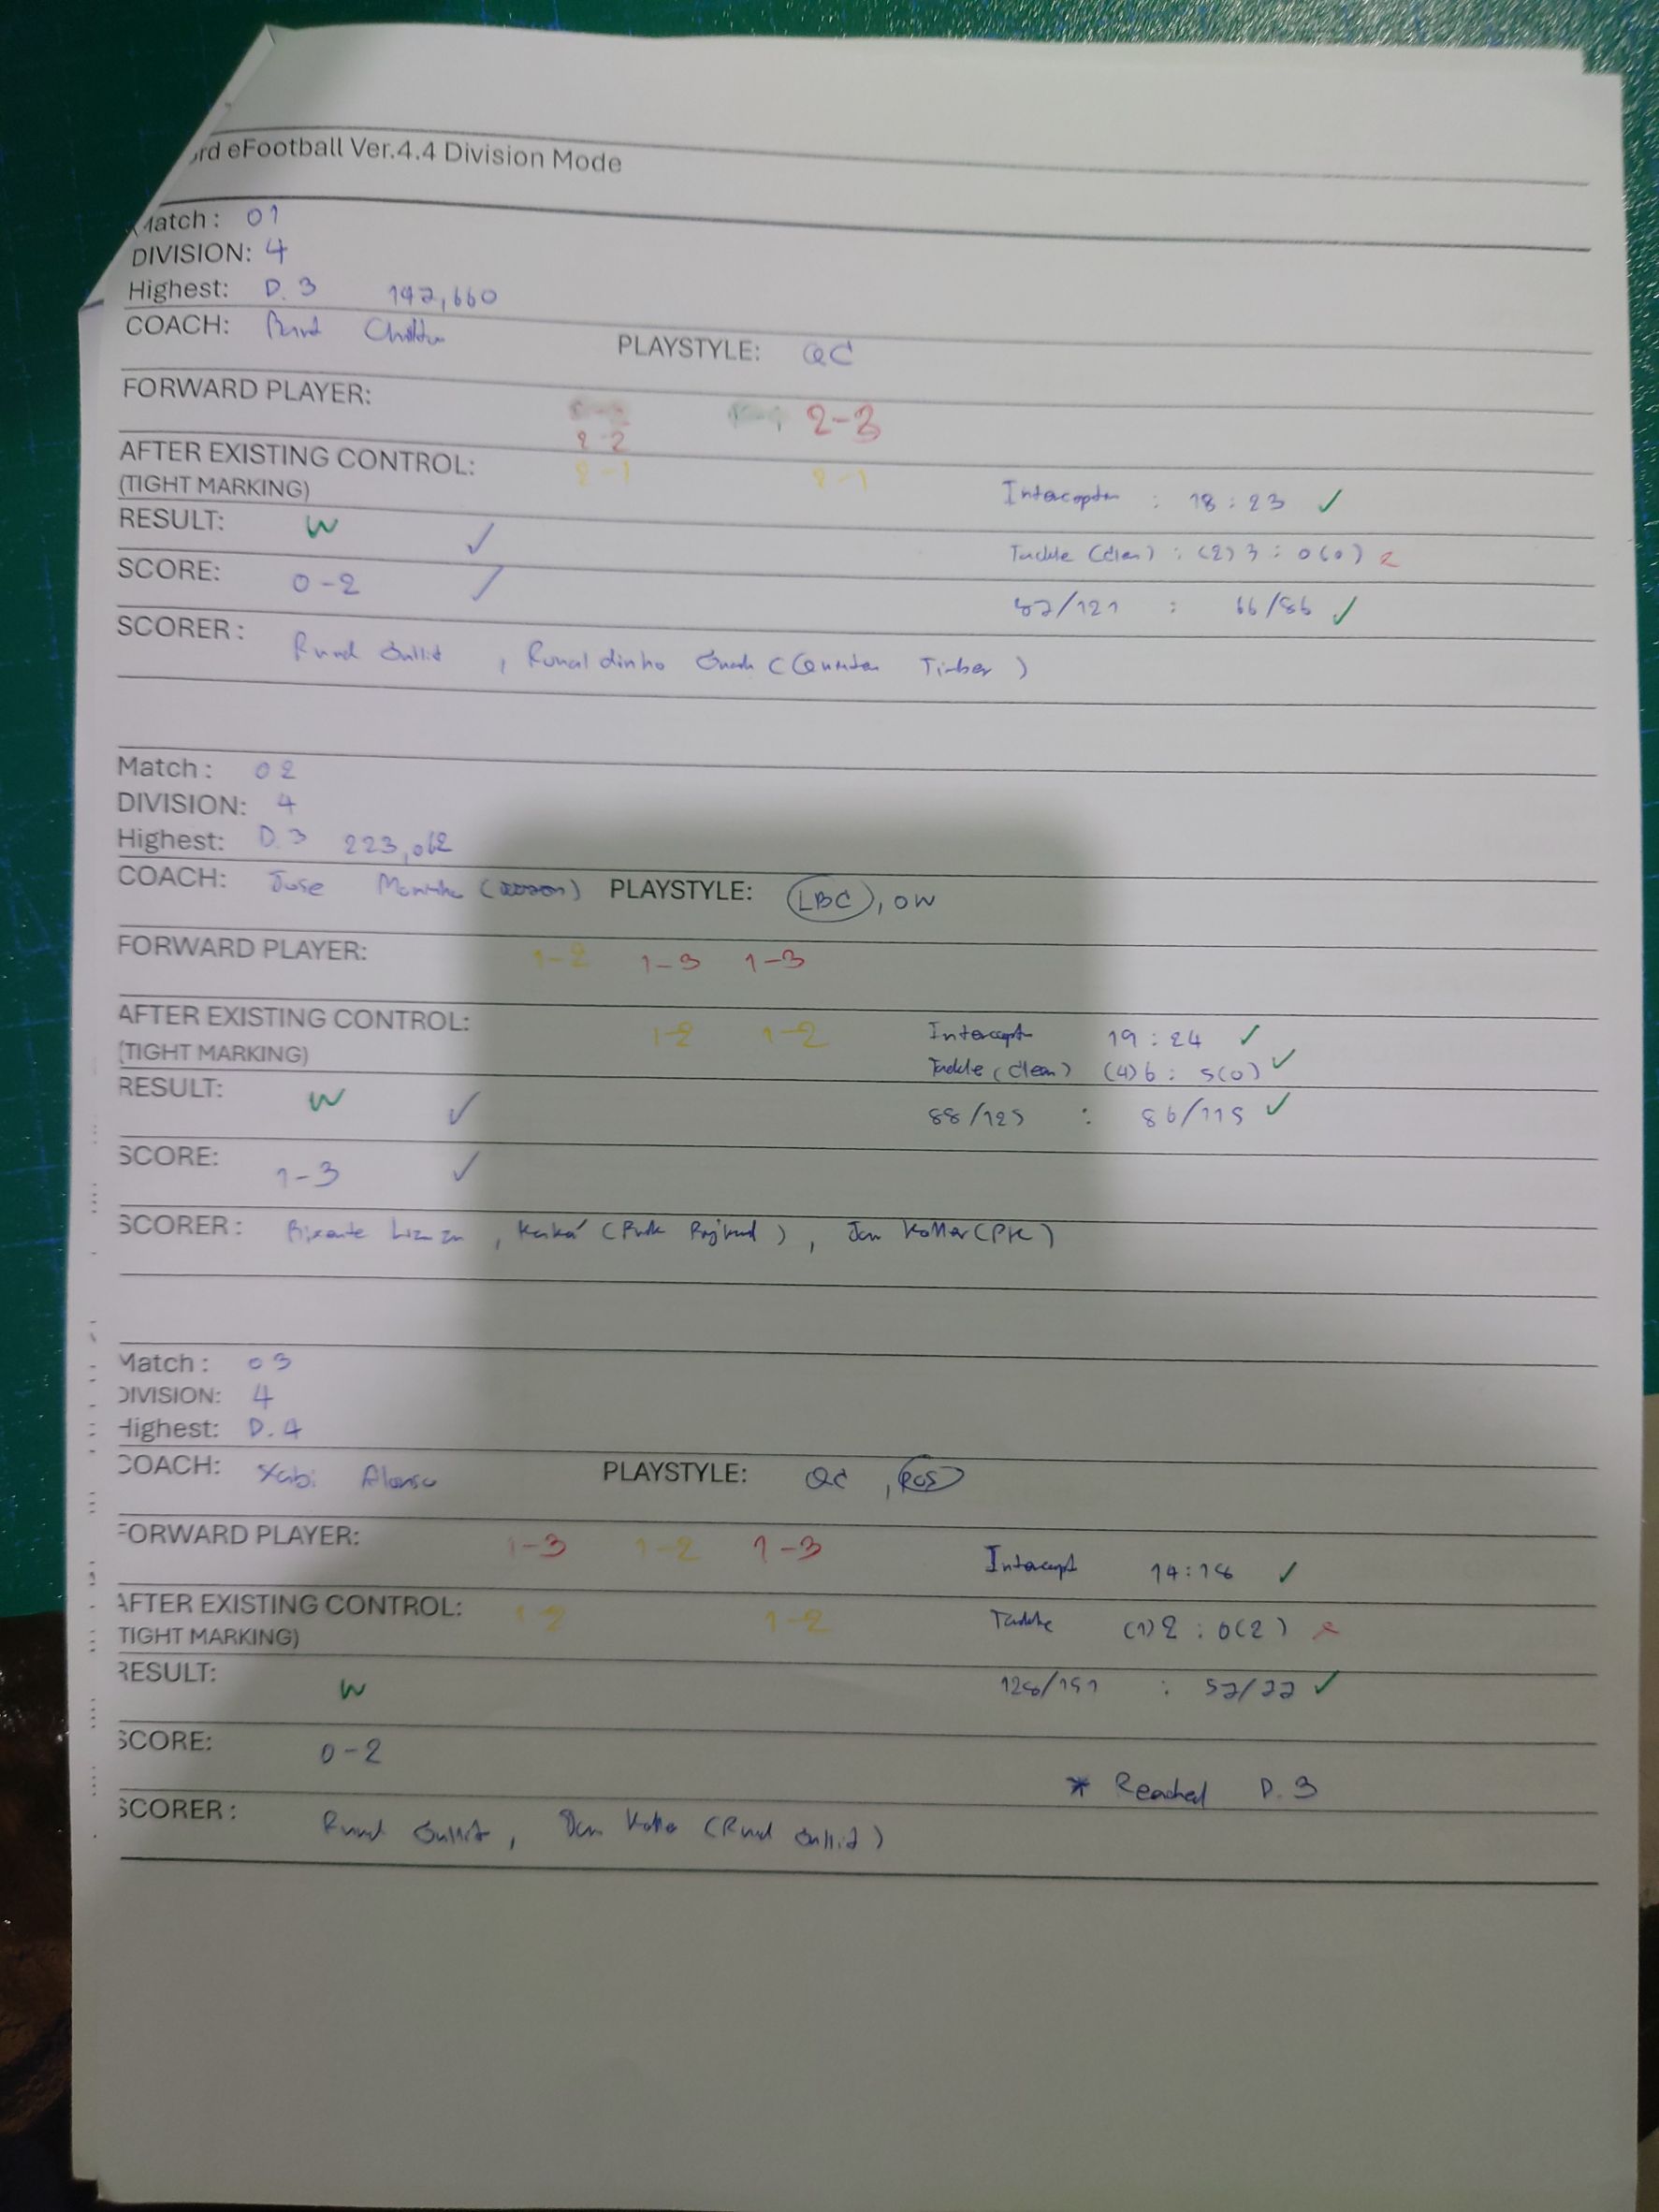 rd eFootball Ver.4.4 Division Mode
Match : 01
DIVISION: 4
Highest: D.3 192,660
COACH: PLAYSTYLE: QC
FORWARD PLAYER: 2-3
2-2
AFTER EXISTING CONTROL: 2-1 2-1
(TIGHT MARKING) : 18 : 23 ✓
RESULT: W ✓
Tackle (clean) : (2) 3 : 0(0)
SCORE: 0-2 ✓
/121 : 66/86 ✓
SCORER : Ruud Gullit , Ronaldinho (Quinten Timber )
Match : 02
DIVISION: 4
Highest: D.3 223,062
COACH: Jose PLAYSTYLE: LBC , OW
FORWARD PLAYER: 1-2 1-3 1-3
AFTER EXISTING CONTROL: 1-2 1-2
Intercept 19 : 24 ✓
(TIGHT MARKING)
Tackle (clean) (4)6 : 5(0) ✓
RESULT: W ✓
88/125 : 86/115 ✓
SCORE: 1-3 ✓
SCORER : Bixente , Kaká ( ) , Jan Koller (PK)
Match : 03
DIVISION: 4
Highest: D.4
COACH: Xabi Alonso PLAYSTYLE: QC ,
FORWARD PLAYER: 1-3 1-2 1-3
Intercept 14:18 ✓
AFTER EXISTING CONTROL: 1-2 1-2
Tackle (1)2 : 0(2)
(TIGHT MARKING)
RESULT: W
128/151 : ✓
SCORE: 0-2
* Reached D.3
SCORER : Ruud Gullit , Jan Koller (Ruud Gullit)